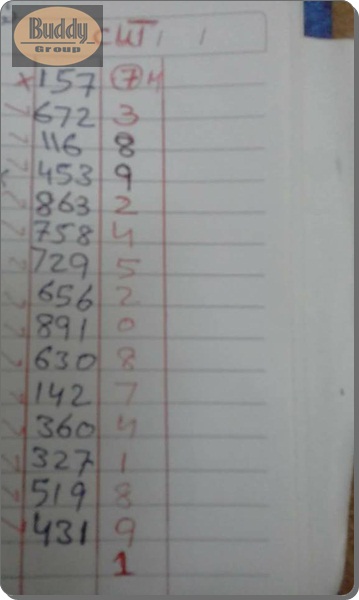 Buddy
Group
CUT
x 157 7 4
672 3
116 8
453 9
863 2
758 4
729 5
656 2
891 0
630 8
142 7
360 4
327 1
519 8
431 9
1